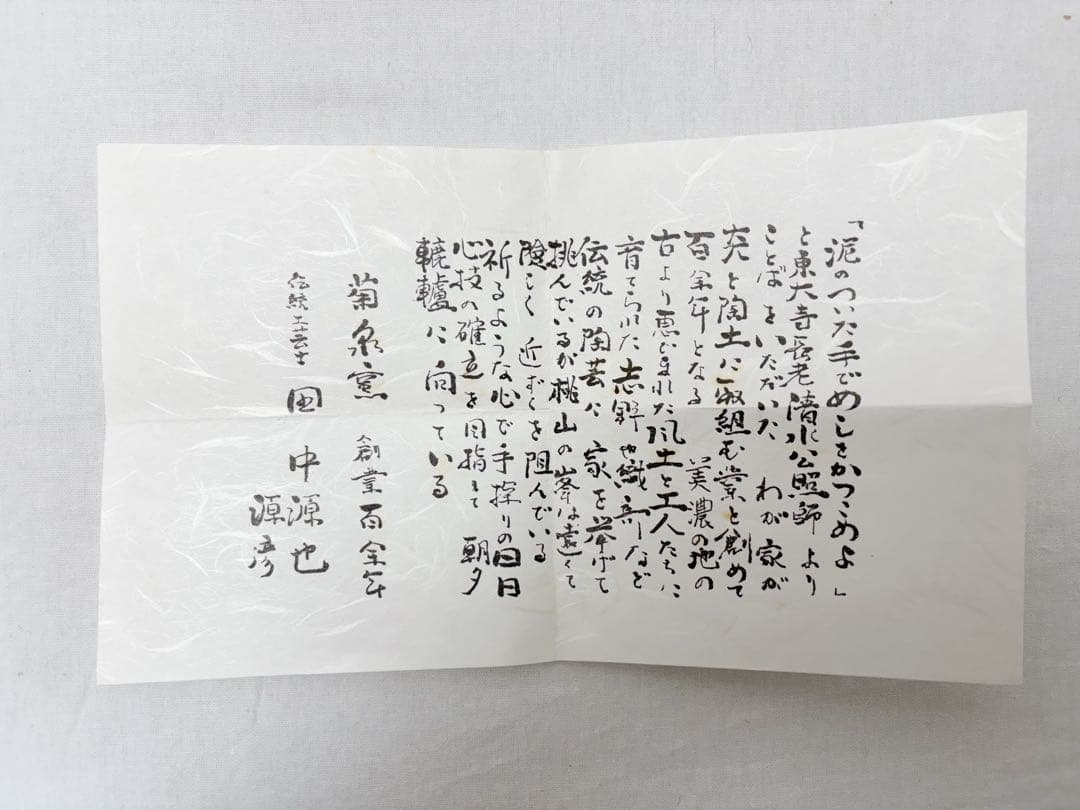 「泥のついた手でめしをかっこめよ」
と東大寺長老清水公照師より
ことばをいただいた わが家が
炎と陶土に取組む業を創めて
百余年となる 美濃の地の
古より恵まれた風土と工人たちに
育てられた志野や織部など
伝統の陶芸に家を挙げて
挑んでいるが桃山の峯は遠くて
険しく 近ずくを阻んでいる
祈るような心で手探りの日日
心技の確立を目指して 朝夕
轆轤に向っている
菊泉窯 創業百余年
伝統工芸士 田中源也
源彦